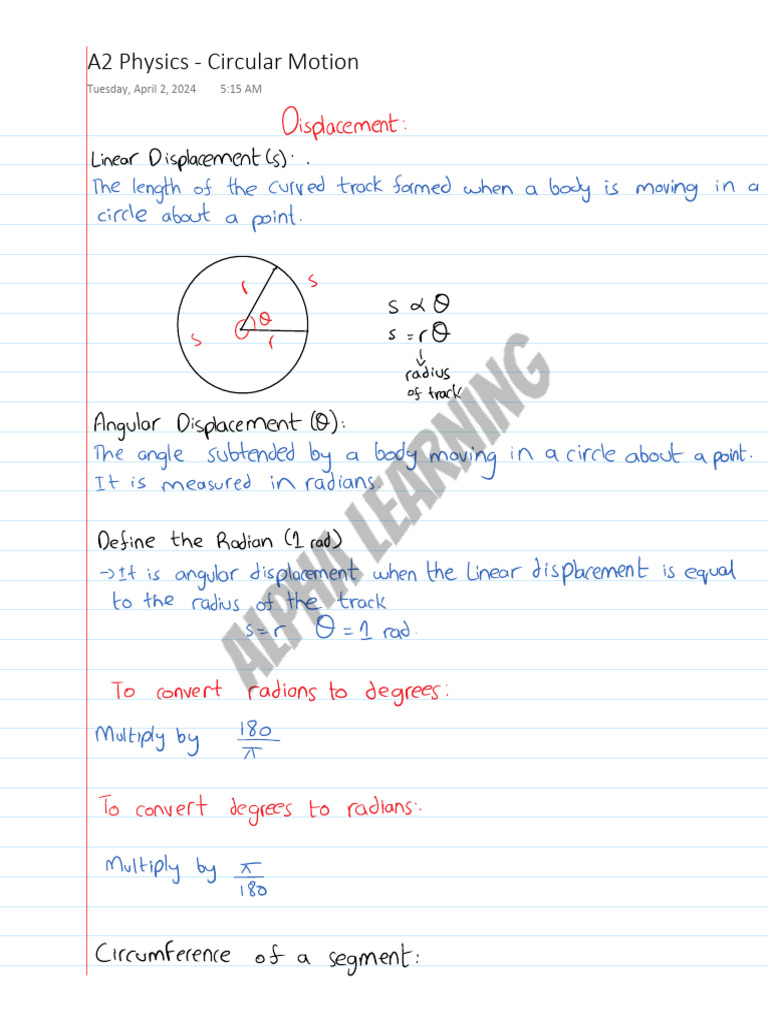 A2 Physics - Circular Motion
Tuesday, April 2, 2024 5:15 AM
Displacement:
Linear Displacement (s): .
The length of the curved track formed when a body is moving in a
circle about a point.
r s
θ
s r
s ∝ θ
s = rθ
↓
radius
of track
Angular Displacement (θ):
The angle subtended by a body moving in a circle about a point.
It is measured in radians.
Define the Radian (1 rad)
→ It is angular displacement when the Linear displacement is equal
to the radius of the track
s = r θ = 1 rad.
To convert radians to degrees:
Multiply by 180/π
To convert degrees to radians:
Multiply by π/180
Circumference of a segment:
ALPHA LEARNING